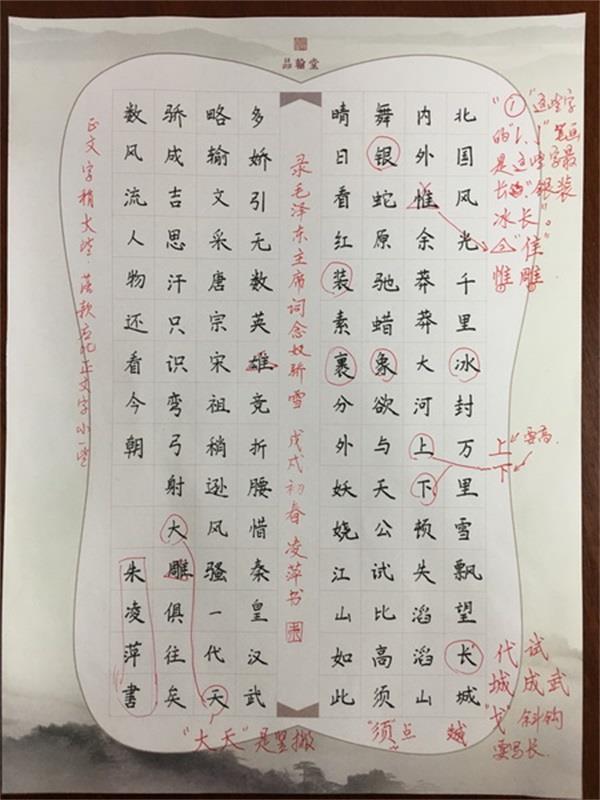 品翰堂
北国风光千里冰封万里雪飘望长城
内外惟余莽莽大河上下顿失滔滔山
舞银蛇原驰蜡象欲与天公试比高须
晴日看红装素裹分外妖娆江山如此
录毛泽东主席词念奴骄雪 戊戌初春凌萍书
多娇引无数英雄竞折腰惜秦皇汉武
略输文采唐宗宋祖稍逊风骚一代天
骄成吉思汗只识弯弓射大雕俱往矣
数风流人物还看今朝 朱凌萍書
正文字稍大些,落款应比正文字小一些
①"这些字
笔画
是这些字最
长 "银装
冰长"。
"隹"
惟雕
上 要高.
下
代试
城成武
"戈"斜钩
要写长.
"须"点
"大天"是竖撇